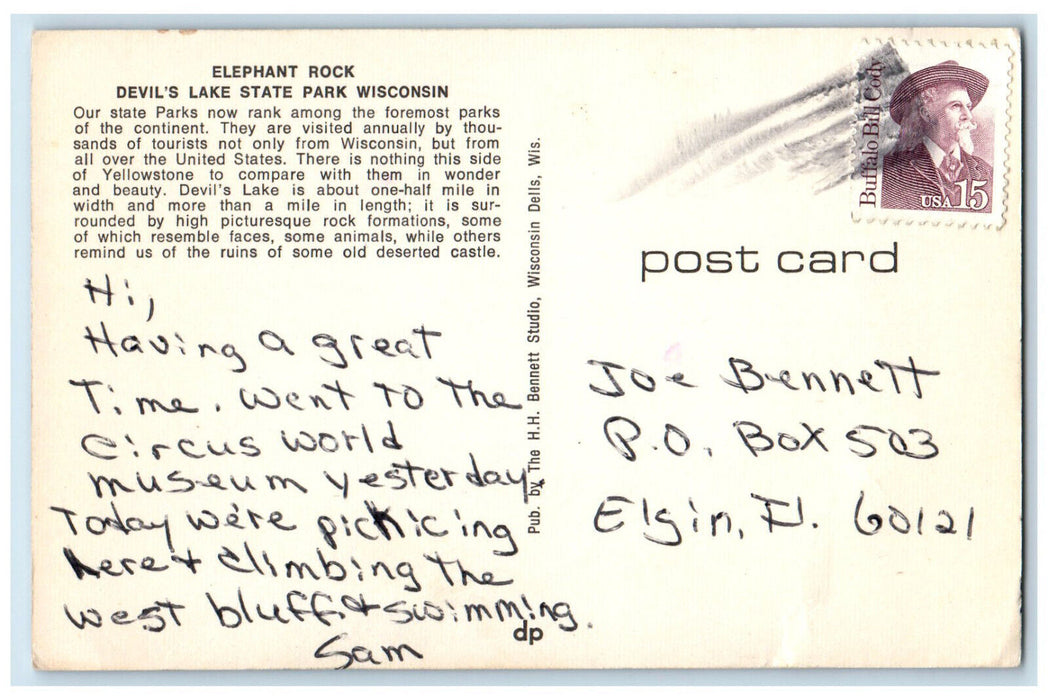 ELEPHANT ROCK
DEVIL'S LAKE STATE PARK WISCONSIN
Our state Parks now rank among the foremost parks
of the continent. They are visited annually by thou-
sands of tourists not only from Wisconsin, but from
all over the United States. There is nothing this side
of Yellowstone to compare with them in wonder
and beauty. Devil's Lake is about one-half mile in
width and more than a mile in length; it is sur-
rounded by high picturesque rock formations, some
of which resemble faces, some animals, while others
remind us of the ruins of some old deserted castle.
Hi,
Having a great
Time. Went To The
circus world
museum yesterday.
Today we're picnicing
here & climbing the
west bluff & swimming.
Sam
dp
Pub. by The H.H. Bennett Studio, Wisconsin Dells, Wis.
Buffalo Bill Cody
USA 15
post card
Joe Bennett
P.O. Box 503
Elgin, Il. 60121